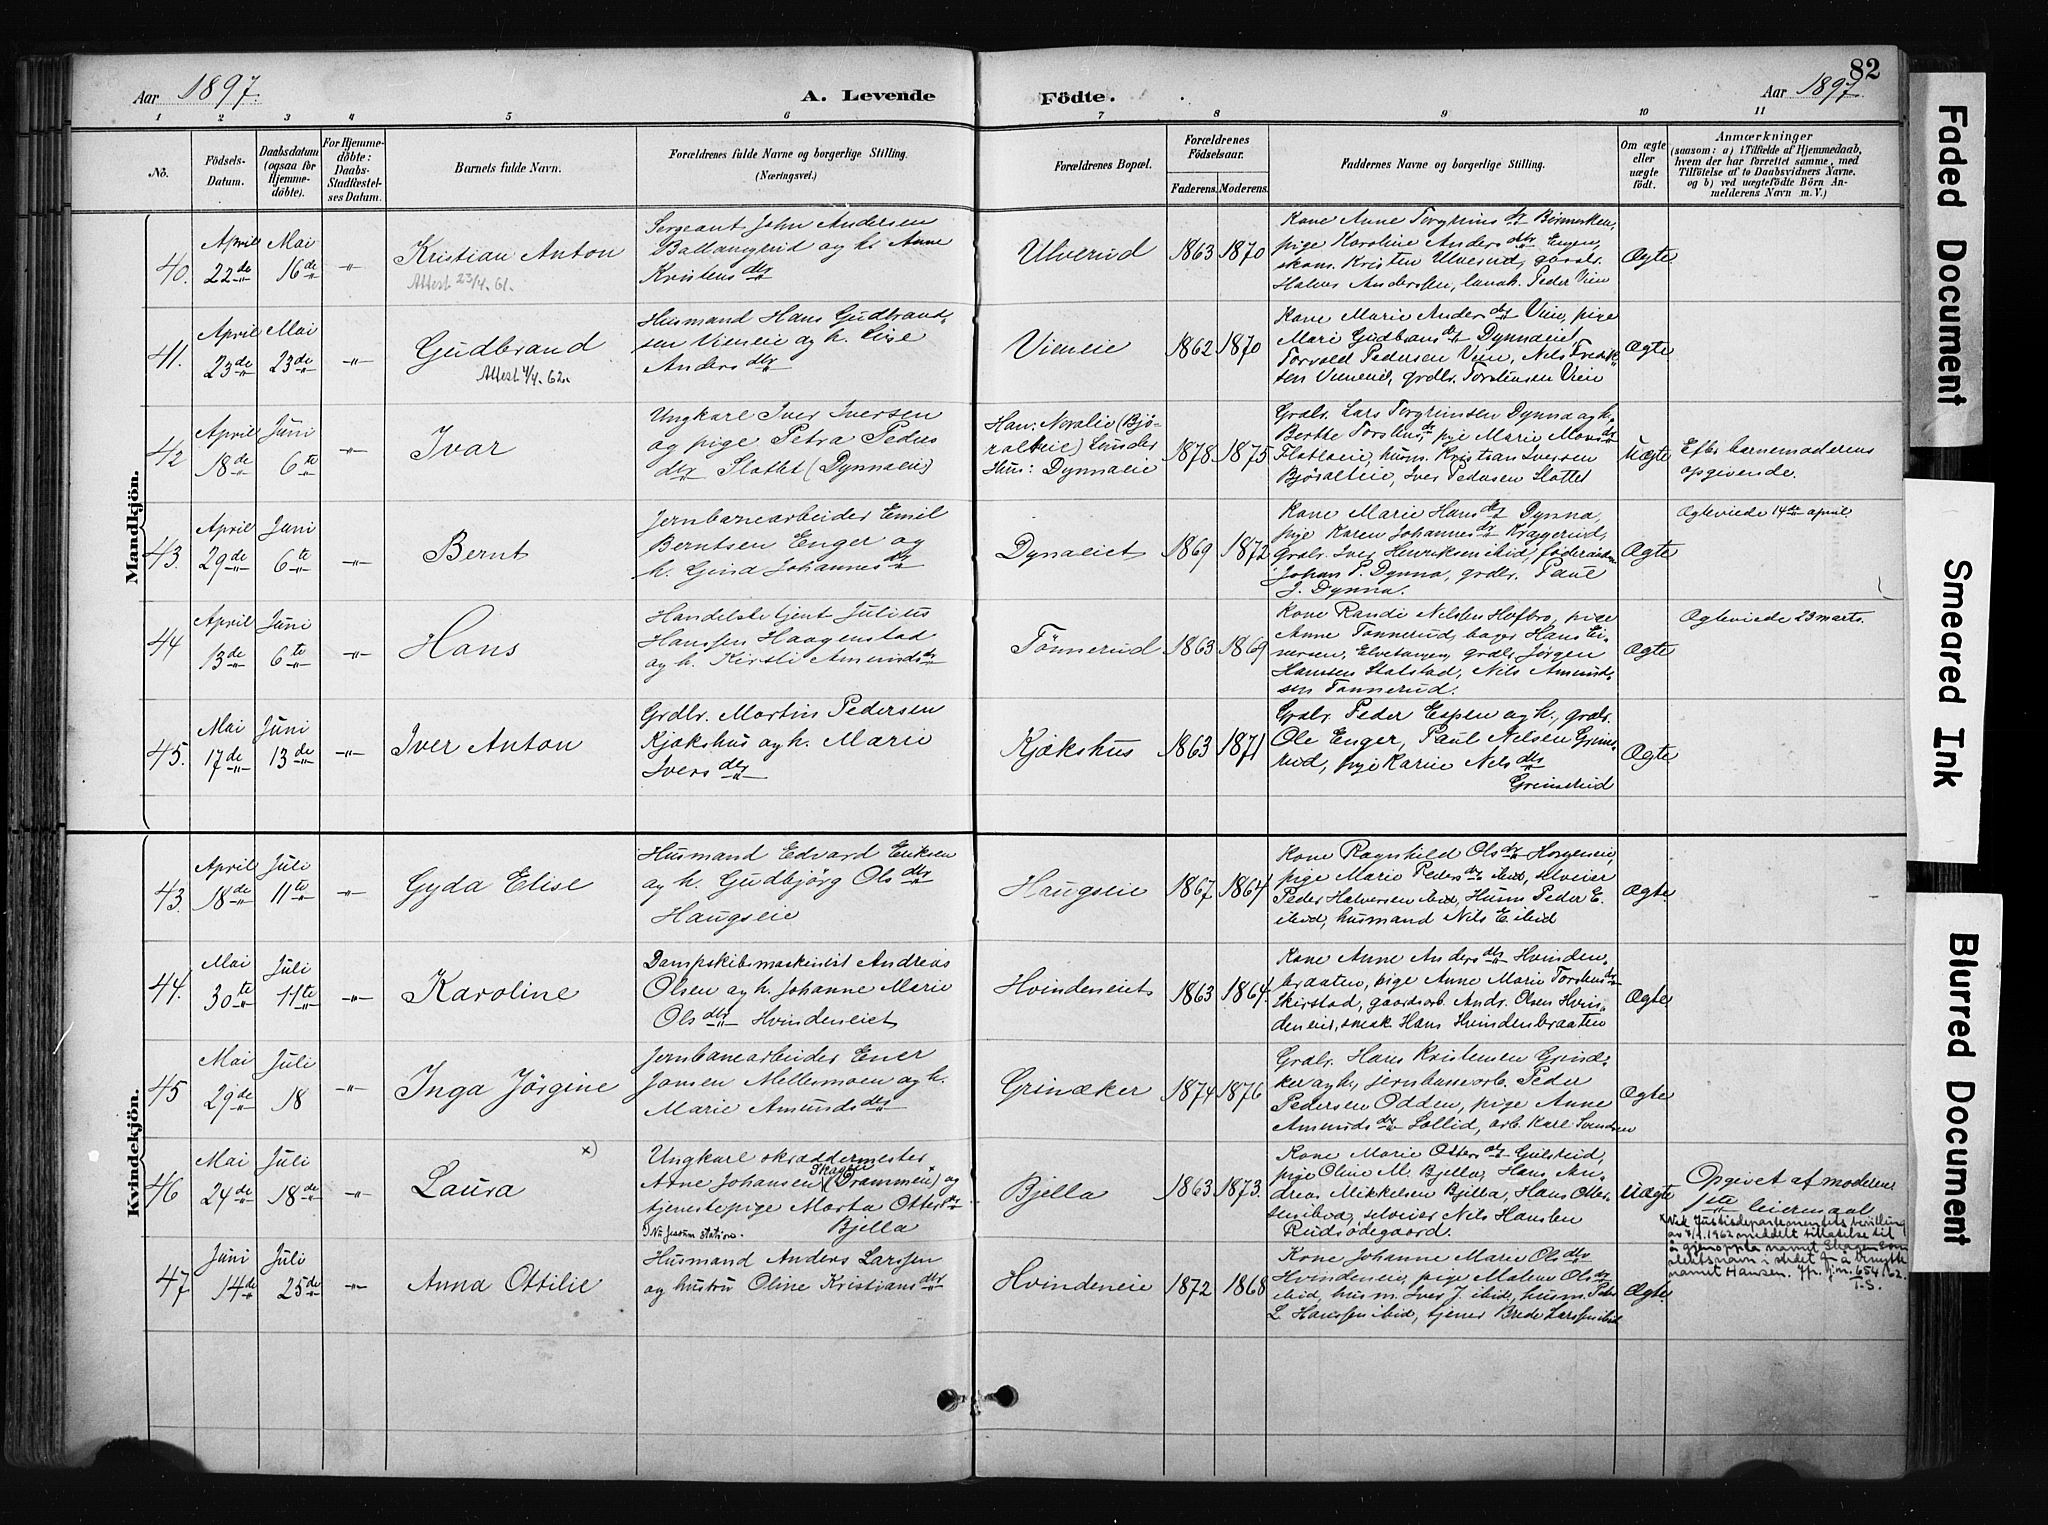 82
Aar 1897.
A. Levende
Födte.
Aar 1897.
1 2 3 4 5 6 7 8 9 10 11
No.
Födsels-
Datum.
Daabsdatum
(ogsaa for
Hjemme-
döbte).
For Hjemme-
döbte:
Daabs-
Stadfæstel-
ses Datum.
Barnets fulde Navn.
Forældrenes fulde Navne og borgerlige Stilling.
(Næringsvei.)
Forældrenes Bopæl.
Forældrenes
Födselsaar.
Faderens. Moderens.
Faddernes Navne og borgerlige Stilling.
Om ægte
eller
uægte
födt.
Anmærkninger
(saasom: a) i Tilfælde af Hjemmedaab,
hvem der har forrettet samme, med
Tilföielse af to Daabsvidners Navne.
og b) ved uægtefödte Börn An-
melderens Navn m. V.)
Mandkjön.
40.
April
22de
Mai
16de
Kristian Anton
Attest 23/4. 61.
Sergeant John Andersen
Ballangrud og h. Anne
Kristensdtr
Ulverud
1863 1870
pige Karoline Andersdtr Engen,
skom. Kristen Ulverud, gaardbr.
Halvor Anderssen, landh. Peder Vien
Ægte
41.
April
23de
Mai
23de
Gudbrand
Attest 4/4. 62.
Husmand Hans Gudbrand-
sen Vieneie og h. Lise
Andersdtr
Vieneie
1862 1870
Kone Marie Andersdtr Vien, pige
Mari Gudbransdtr Dynnaeiet,
Torvald Pedersen Vien, Nils Fredrik-
sen Vieneie, grdbr. Torstensen Vien
Ægte
42
April
18de
Juni
6te
Ivar
Ungkarl Iver Iversen
og pige Petra Peders
dtr Slottet (Dynnaeie)
Han: Noralie (Bjø-
ralteie) Lunder
Hun: Dynnaeie
1878 1875
Grdbr. Lars Torgrimsen Dynna og h.
Berthe Torstensdtr, pige Marie Monsdtr
Flatlaeie, husm. Kristian Iversen
Bjøralteie, Iver Pedersen Slottet
Uægte
Efter barnemoderens
opgivende.
43.
April
29de
Juni
6te
Bernt
Jernbanearbeider Emil
Berntsen Enger og
h. Gina Johannesdtr
Dynaeiet
1869 1872
Kone Marie Hansdtr Dynna,
pige Karen Johannesdtr Kraggerud,
Grdbr. Iver Henriksen ibid, føderaadsm.
Johan P. Dynna, grdbr. Paul
J. Dynna.
Ægte
Ægteviede 14de april.
44
April
13de
Juni
6te
Hans
Handelsbetjent Julius
Hanssen Haagenstad
og h. Kirsti Amundsdtr
Tönnerud
1863 1869
Kone Randi Nilsen Hofbro, pige
Anne Tønnerud, bager Hans Ei-
nersen, Elvetangen, grdbr. Jørgen
Hansen Stalstad, Nils Amund-
sen Tønnerud.
Ægte
Ægteviede 23 marts.
45.
Mai
17de
Juni
13de
Iver Anton
Grdbr. Martin Pedersen
Kjøkshus og h. Marie
Iversdtr
Kjøkshus
1863 1871
Grdbr. Peder Espen og h., grdbr.
Ole Enger, Paul Nilsen Grims-
rud, pige Karie Nilsdtr
Grimsrud
Ægte
Kvindekjön.
43.
April
18de
Juli
11te
Gyda Elise
Husmand Edvard Eriksen
og h. Gudbjörg Olsdtr
Haugseie
Haugseie
1867 1864
Kone Ragnhild Olsdtr Horgeneie,
pige Marie Pedersdtr ibid, selveier
Peder Halversen ibid, Husm. Peder E.
ibid, husmand Nils E. ibid
Ægte
44.
Mai
30te
Juli
11te
Karoline
Dampskibsmaskinist Andreas
Olsen og h. Johanne Marie
Olsdtr Hvindeneiet
Hvindeneiet
1863 1864.
Kone Anne Andersdtr Hvinden-
braaten, pige Anne Marie Torstensdtr
Skirstad, gaardsarb. Andr. Olsen Hvin-
deneie, snek. Hans Hvindenbraaten
Ægte
45
Mai
29de
Juli
18
Inga Jörgine
Jernbanearbeider Ener
Jansen Mellemoen og h.
Marie Amundsdtr
Grinaker
1874 1876
Grdbr. Hans Kristensen Grina-
ker og h., jernbanearb. Peder
Pedersen Odden, pige Anne
Amundsdtr Lollid, arb. Karl Svendsen
Ægte
46
Mai
24de
Juli
18de
Laura
×)
Ungkarl skræddermester
Skagen
Arne Johansen (Drammen) og
tjenestepige Marta Ottersdtr
Bjella
) Nu Jessum station.
Bjella
1863 1873.
Kone Marie Ottersdtr Gulsrud,
pige Oline M. Bjella, Hans An-
dreas Mikkelsen Bjella, Hans Otter-
sen ibid, selveier Nils Hansen
Rudsødegaard.
Uægte
Opgivet af moderen
1ste leiermaal
× Ved Justisdepartementets bevilling
av 8/1. 1962 meddelt tillatelse til
å gjenoppta navnet Skagen som
slektsnavn i stedet for å benytte
navnet Hansen. Jfr. j.nr. 654/62.
T.S.
47
Juni
14de
Juli
25de
Anna Ottilie
Husmand Anders Larssen
og hustru Oline Kristiansdtr
Hvindeneie
1872 1868
Kone Johanne Marie Olsdtr
Hvindeneie, pige Malene Olsdtr
ibid, husm. Iver J. ibid, husm. Peder
L. Hanssen ibid, tjener Brede Larssen ibid
Ægte.
Faded Document
Smeared Ink
Blurred Document